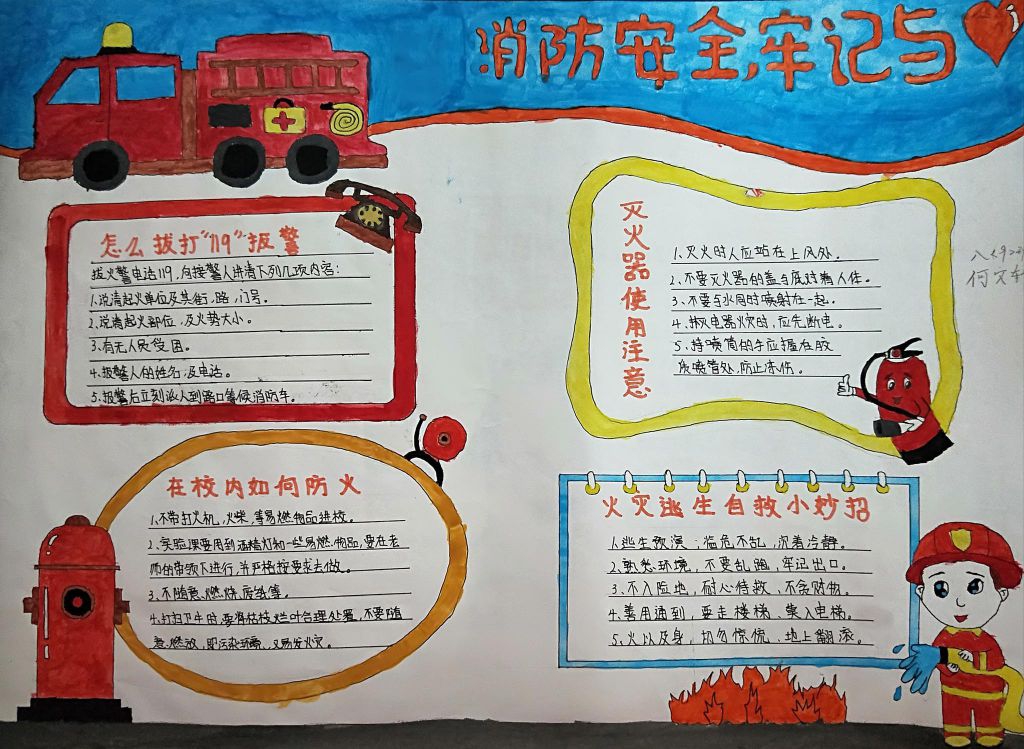 消防安全,牢记与
怎么拔打“119”报警
拔火警电话119,向接警人讲清下列几项内容:
1.说清起火单位及其街,路,门号。
2.说清起火部位,及火势大小。
3.有无人员受困。
4.报警人的姓名;及电话。
5.报警后立刻派人到路口等候消防车。
灭火器使用注意
1.灭火时人应站在上风处。
2.不要灭火器的盖与底对着人体。
3.不要与水同时喷射在一起。
4.扑救电器火灾时,应先断电。
5.持喷筒的手应握在胶
质喷管处,防止冻伤。
在校内如何防火
1.不带打火机,火柴,等易燃物品进校。
2.实验课要用到酒精灯和一些易燃物品,要在老
师的带领下进行,并严格按要求去做。
3.不随意燃烧废纸等。
4.打扫卫生时,要将枯枝烂叶合理处置,不要随
意燃放,即污染环境,又易发火灾。
火灾逃生自救小妙招
1.逃生预演;临危不乱,沉着冷静。
2.熟悉环境,不要乱跑,牢记出口。
3.不入险地,耐心待救,不贪财物。
4.善用通到,要走楼梯,莫入电梯。
5.火以及身,切勿惊慌、地上翻滚。